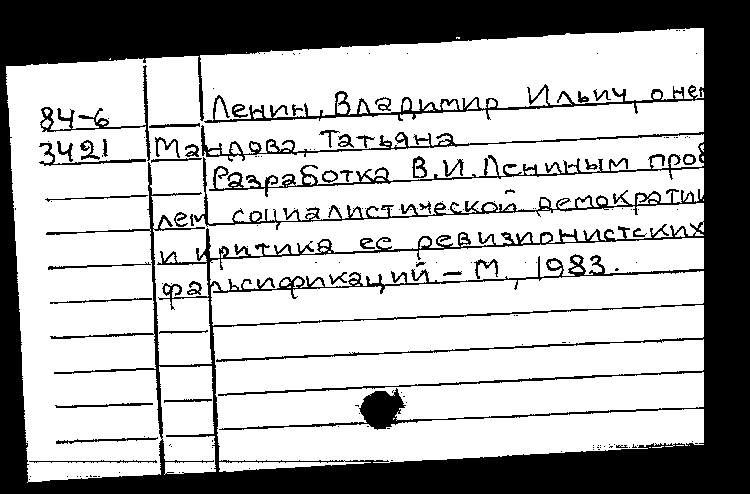 84-6 Ленин, Владимир Ильич, о нем
3421 Мандова, Татьяна
Разработка В.И.Лениным проб
лем социалистической демократии
и критика ее ревизионистских
фальсификаций. – М., 1983.